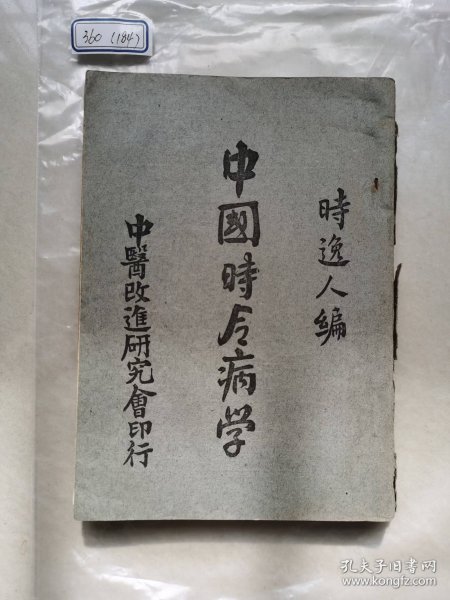 360 (184)
時逸人編
中國時令病学
中醫改進研究會印行
孔夫子旧书网
www.kongfz.com